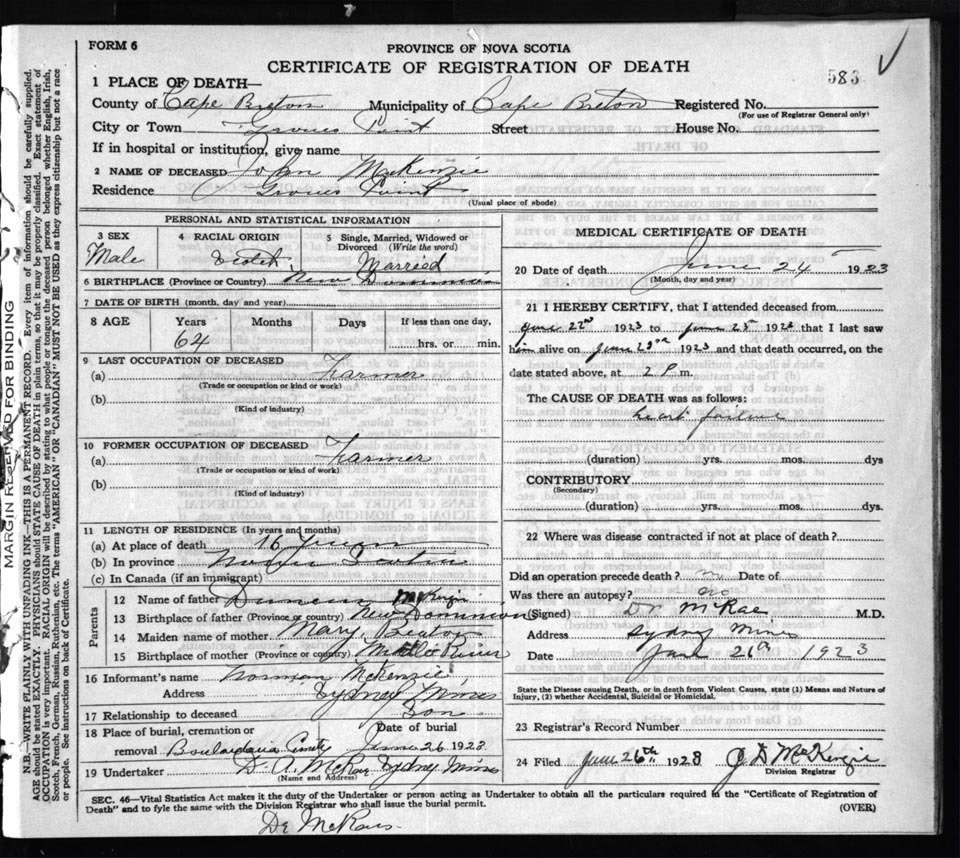 FORM 6
PROVINCE OF NOVA SCOTIA
CERTIFICATE OF REGISTRATION OF DEATH
583
1 PLACE OF DEATH—
County of Cape Breton Municipality of Cape Breton Registered No.
(For use of Registrar General only)
City or Town Groves Point Street House No.
If in hospital or institution, give name
2 NAME OF DECEASED John McKenzie
Residence Groves Point
(Usual place of abode)
PERSONAL AND STATISTICAL INFORMATION
3 SEX 4 RACIAL ORIGIN 5 Single, Married, Widowed or Divorced (Write the word)
Male Scotch Married
6 BIRTHPLACE (Province or Country) New Dominion
7 DATE OF BIRTH (month, day and year)
8 AGE Years Months Days If less than one day,
64 hrs. or min.
9 LAST OCCUPATION OF DECEASED
(a) Farmer
(Trade or occupation or kind of work)
(b)
(Kind of industry)
10 FORMER OCCUPATION OF DECEASED
(a) Farmer
(Trade or occupation or kind of work)
(b)
(Kind of industry)
11 LENGTH OF RESIDENCE (In years and months)
(a) At place of death 16 Years
(b) In province Nova Scotia
(c) In Canada (if an immigrant)
Parents
12 Name of father Duncan McKenzie
13 Birthplace of father (Province or country) New Dominion
14 Maiden name of mother Mary Beaton
15 Birthplace of mother (Province or country) River
16 Informant's name Norman McKenzie
Address Sydney Mines
17 Relationship to deceased Son
18 Place of burial, cremation or Date of burial
removal Boulardarie June 26 1923
19 Undertaker D. A. McRae Sydney Mines
(Name and Address)
MEDICAL CERTIFICATE OF DEATH
20 Date of death June 24 1923
(Month, day and year)
21 I HEREBY CERTIFY, that I attended deceased from
June 22nd 1923 to June 23rd 1923 that I last saw
him alive on June 23rd 1923 and that death occurred, on the
date stated above, at 2 P. m.
The CAUSE OF DEATH was as follows:
heart failure
(duration) yrs. mos. dys
CONTRIBUTORY
(Secondary)
(duration) yrs. mos. dys.
22 Where was disease contracted if not at place of death?
Did an operation precede death? no Date of
Was there an autopsy? no
(Signed) Dr McRae M.D.
Address Sydney Mines
Date June 26th 1923
State the Disease causing Death, or in death from Violent Causes, state (1) Means and Nature of
Injury, (2) whether Accidental, Suicidal or Homicidal.
23 Registrar's Record Number
24 Filed June 26th 1923 J. D. McKenzie
Division Registrar
SEC. 46—Vital Statistics Act makes it the duty of the Undertaker or person acting as Undertaker to obtain all the particulars required in the "Certificate of Registration of
Death" and to fyle the same with the Division Registrar who shall issue the burial permit.
(OVER)
MARGIN RESERVED FOR BINDING
N.B.—WRITE PLAINLY WITH UNFADING INK—THIS IS A PERMANENT RECORD. Every item of information should be carefully supplied.
AGE should be stated EXACTLY. PHYSICIANS should STATE CAUSE OF DEATH in plain terms, so that it may be properly classified. Exact statement of
OCCUPATION is very important. RACIAL ORIGIN will be described by stating to what people or tongue the deceased person belonged whether English, Irish,
Scotch, French, German, Russian, Ruthenian, etc. The terms "AMERICAN" OR "CANADIAN" MUST NOT BE USED as they express citizenship but not a race
or people. See instructions on back of Certificate.